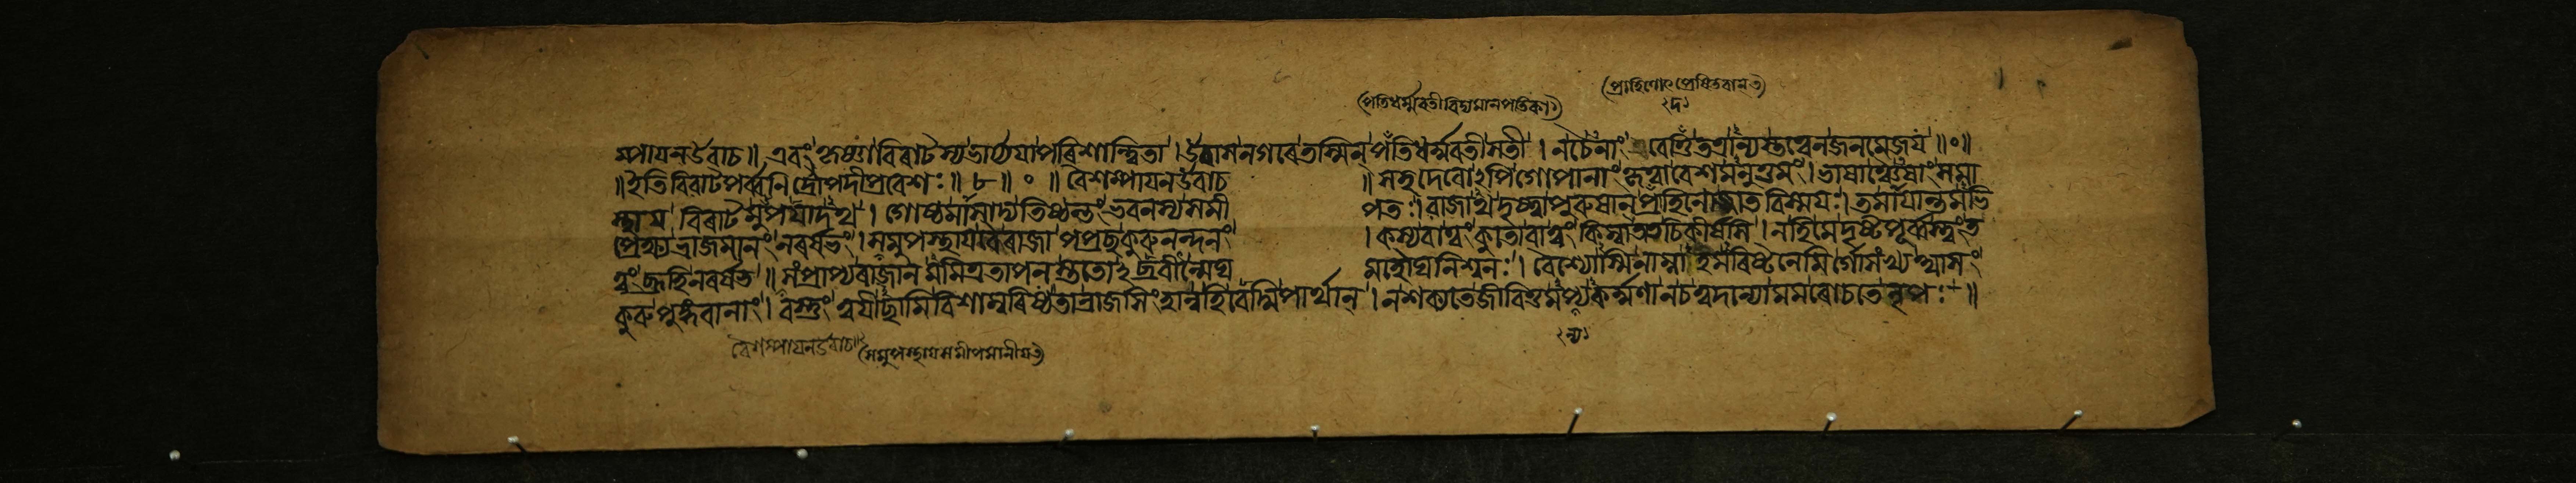 (পতিধর্ম্মবতীবিদ্যমানপতিকা)
(প্রাহিণোৎপ্রেষিতবান)
ম্পায়নউবাচ॥ এবংকৃষ্ণাবিৰাটস্যভার্য্যযাপৰিশান্ত্বিতা। উবাসনগৰেতস্মিন্পতিধর্ম্মবতীসতী। নচৈনাংবেত্তিতত্রান্যস্তত্ত্বেনজনমেজয॥০॥
॥ইতিবিৰাটপর্ব্বনিদ্রৌপদীপ্রবেশঃ॥৮॥০॥বৈশম্পাযনউবাচ॥সহদেবোঽপিগোপানাংকৃত্বাবেশমনুত্তমং। ভাষাঞ্চৈষাংসমা
স্থায বিৰাটমুপযাদথ। গোষ্ঠমাসাদ্যতিষ্ঠন্তংভবনস্যসমীপতঃ। ৰাজাথদৃষ্ট্বাপুৰুষানপ্রাহিনোজ্জাতবিস্ময়ঃ। তমাযান্তমভি
প্রেক্ষ্যভ্রাজমানংনৰর্ষভং। সমুপস্থাযবৈৰাজাপপ্রছকুৰুনন্দনং। কস্যবাত্বংকুতোবাত্বংকিম্বাতাতচিকীর্ষসি। নহিমেদৃষ্টপূর্ব্বস্ত্বংত
ত্ত্বংব্রূহিনৰর্ষভ॥ সংপ্রাপ্যৰাজানমমিত্রতাপনস্ততোঽব্রবীন্মেঘমহৌঘনিশ্বনঃ। বৈশ্যোস্মিনাম্নাহমৰিষ্টনেমির্গোসংখ্যআসং
কুৰুপুঙ্গবানাং। বস্তুংত্বযীছামিবিশাম্বৰিষ্ঠতান্ৰাজসিংহান্নহিবেদ্মিপার্থান্। নশক্যতেজীবিতুমপ্যকর্ম্মণানচত্বদন্যোমমৰোচতেনৃপঃ॥
বৈশম্পাযনউবাচ॥ (সমুপস্থাযসমীপমানীয)